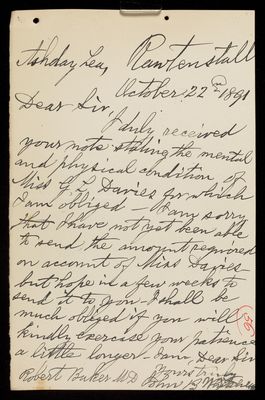 Ashday Lea, Rawtenstall
October 22nd 1891
Dear Sir,
I duly received
your note stating the mental
and physical condition of
Miss G L Davies for which
I am obliged. I am sorry
that I have not yet been able
to send the amount required
on account of Miss Davies
but hope in a few weeks to
send it to you. I shall be
much obliged if you will
kindly exercise your patience
a little longer. I am, Dear Sir
Yours truly
Robert Baker M.D.